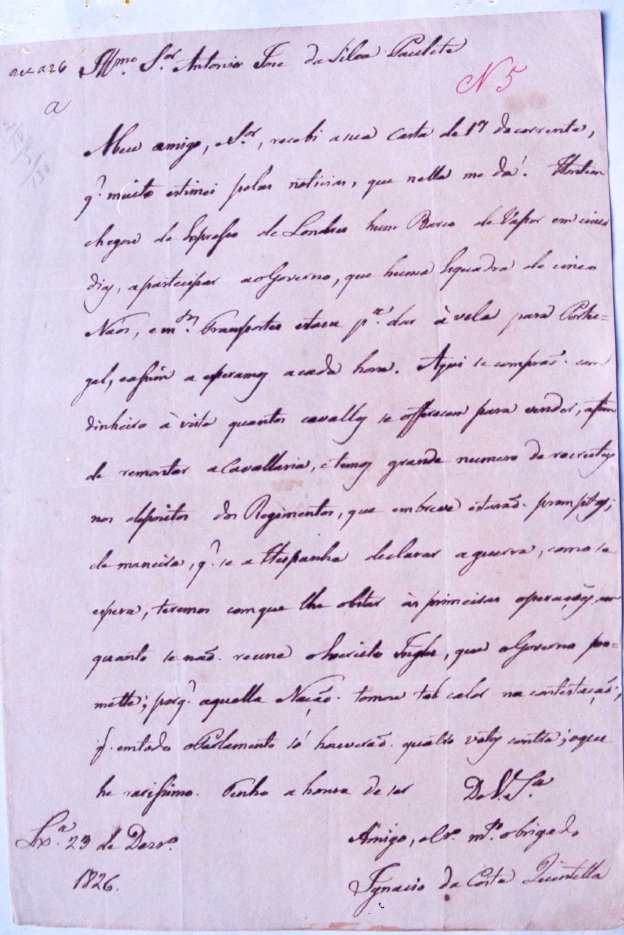 Illmo. Sor. Antonio Jose da Silva Paulete
N 5
a
Meu amigo, e Sor., recebi a sua carta de 17 do corrente,
q. muito estimei pelas noticias, que nella me dá. Hontem
chegou de Expresso de Londres hum Barco de Vapor em cinco
dias, a participar ao Governo, que huma Esquadra de cinco
Naos, e ms. Transportes estava pa. dar à vela para Portu-
gal, e assim a esperamos a cada hora. Aqui se comprão com
dinheiro à vista quantos cavallos se offerecem para vender, afim
de remontar a Cavallaria, e temos grande numero de recrutas
nos depositos dos Regimentos, que em breve estarão promptos;
de maneira, q. se a Hespanha declarar a guerra, como se
espera, teremos com que lhe obstar às primeiras operações, em
quanto se não reune o Exercito Inglez, que o Governo pro-
mette; porq. aquella Nação tomou tal calor na contestação,
q. em todo o Parlamento só houverão quatro votos contra; o que
he rarissimo. Tenho a honra de ser De V. Sa.
Lxa. 23 de Dezro.
1826.
Amigo, e Cro. mto. obrigado
Ignacio da Costa Quintella